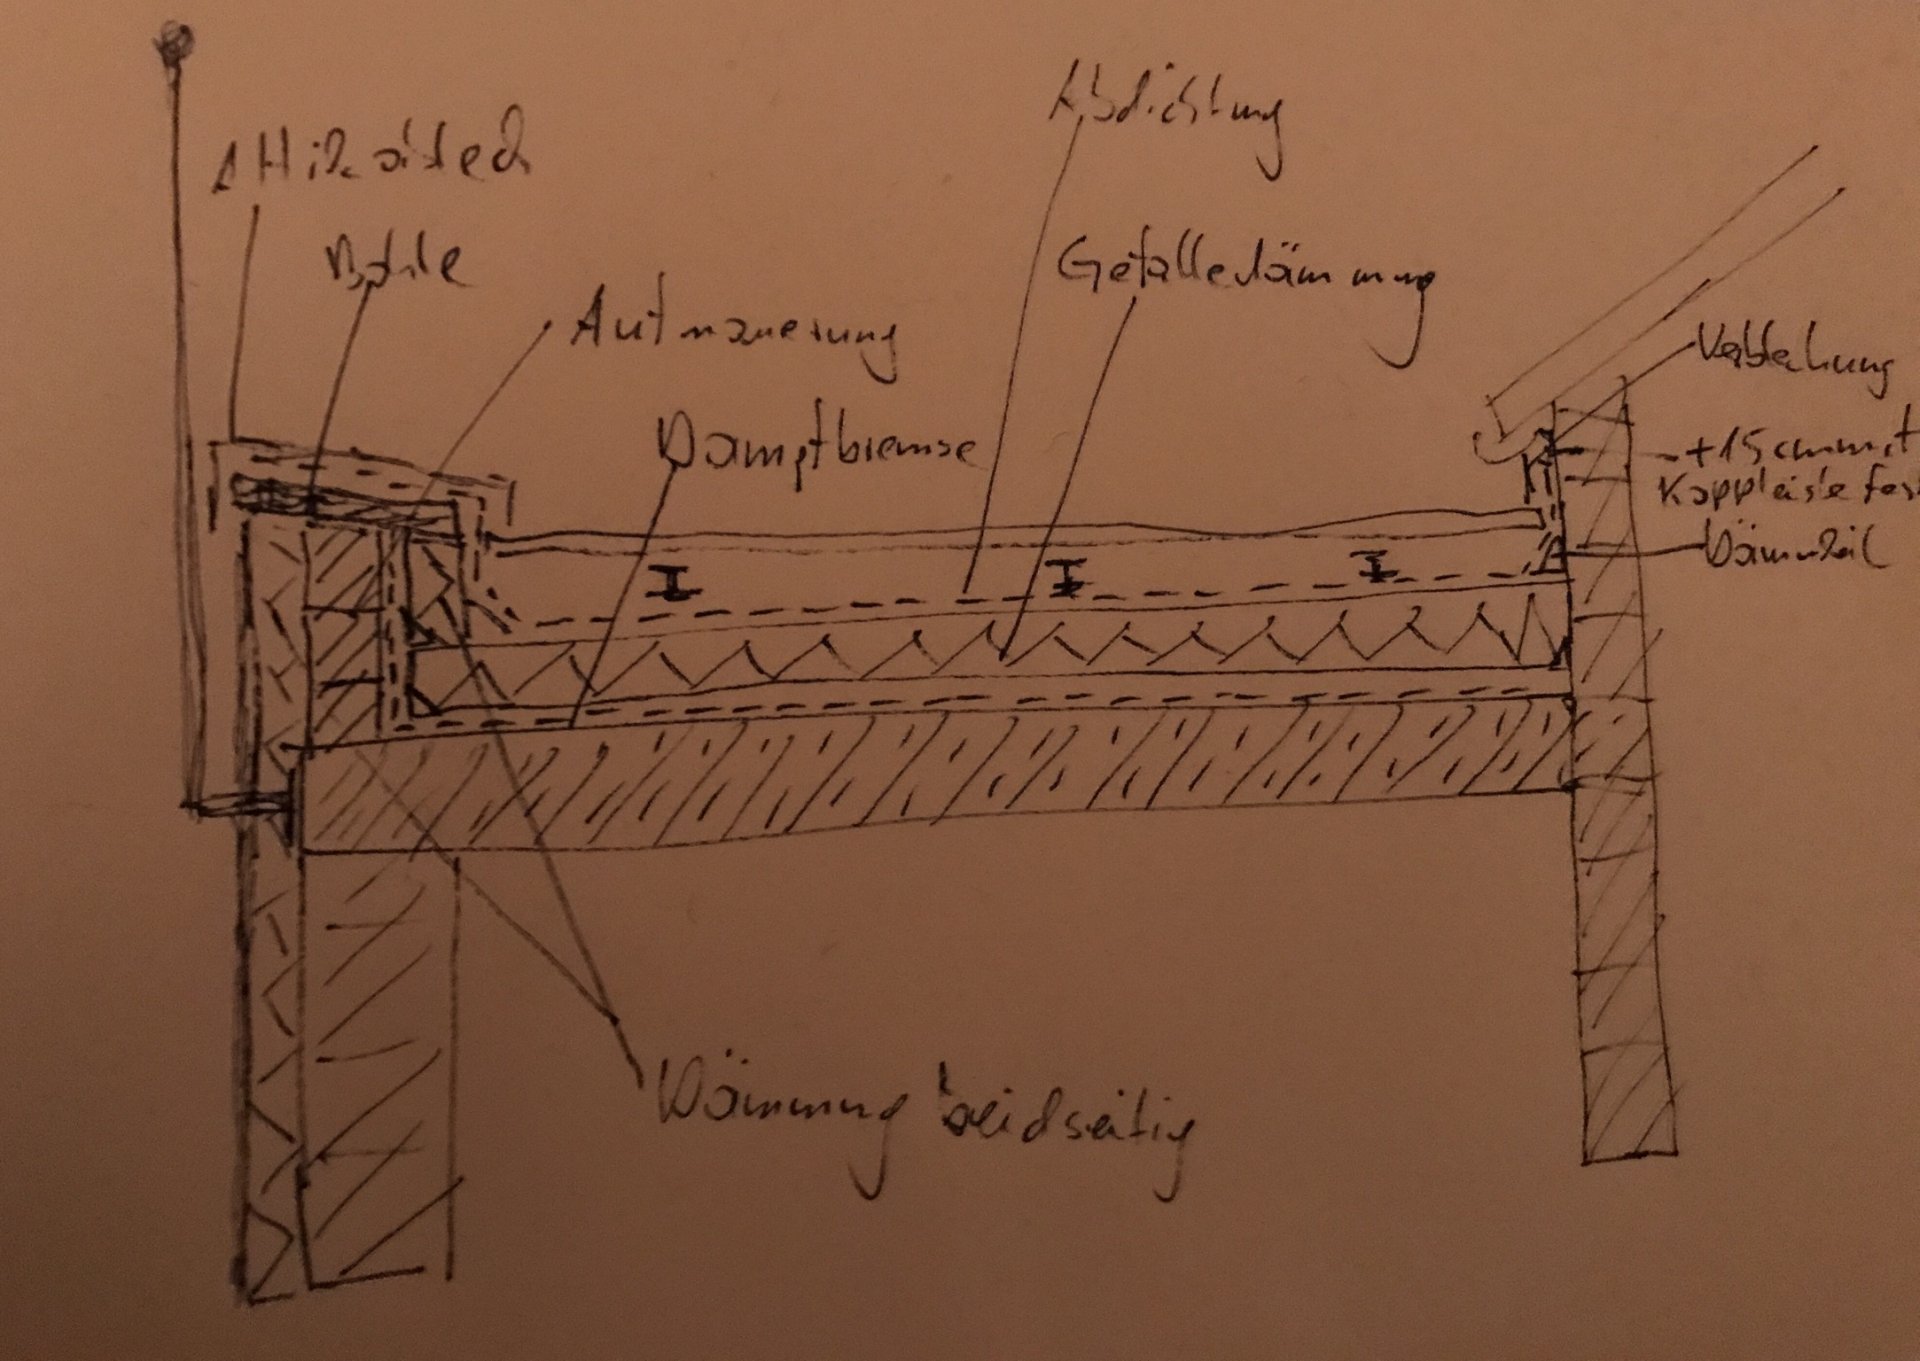 Abdichtung
Attikablech
Bohle
Gefälledämmung
Aufmauerung
Verblechung
Dampfbremse
+15cm mit
Kappleiste fes
Dämmkeil
Dämmung beidseitig